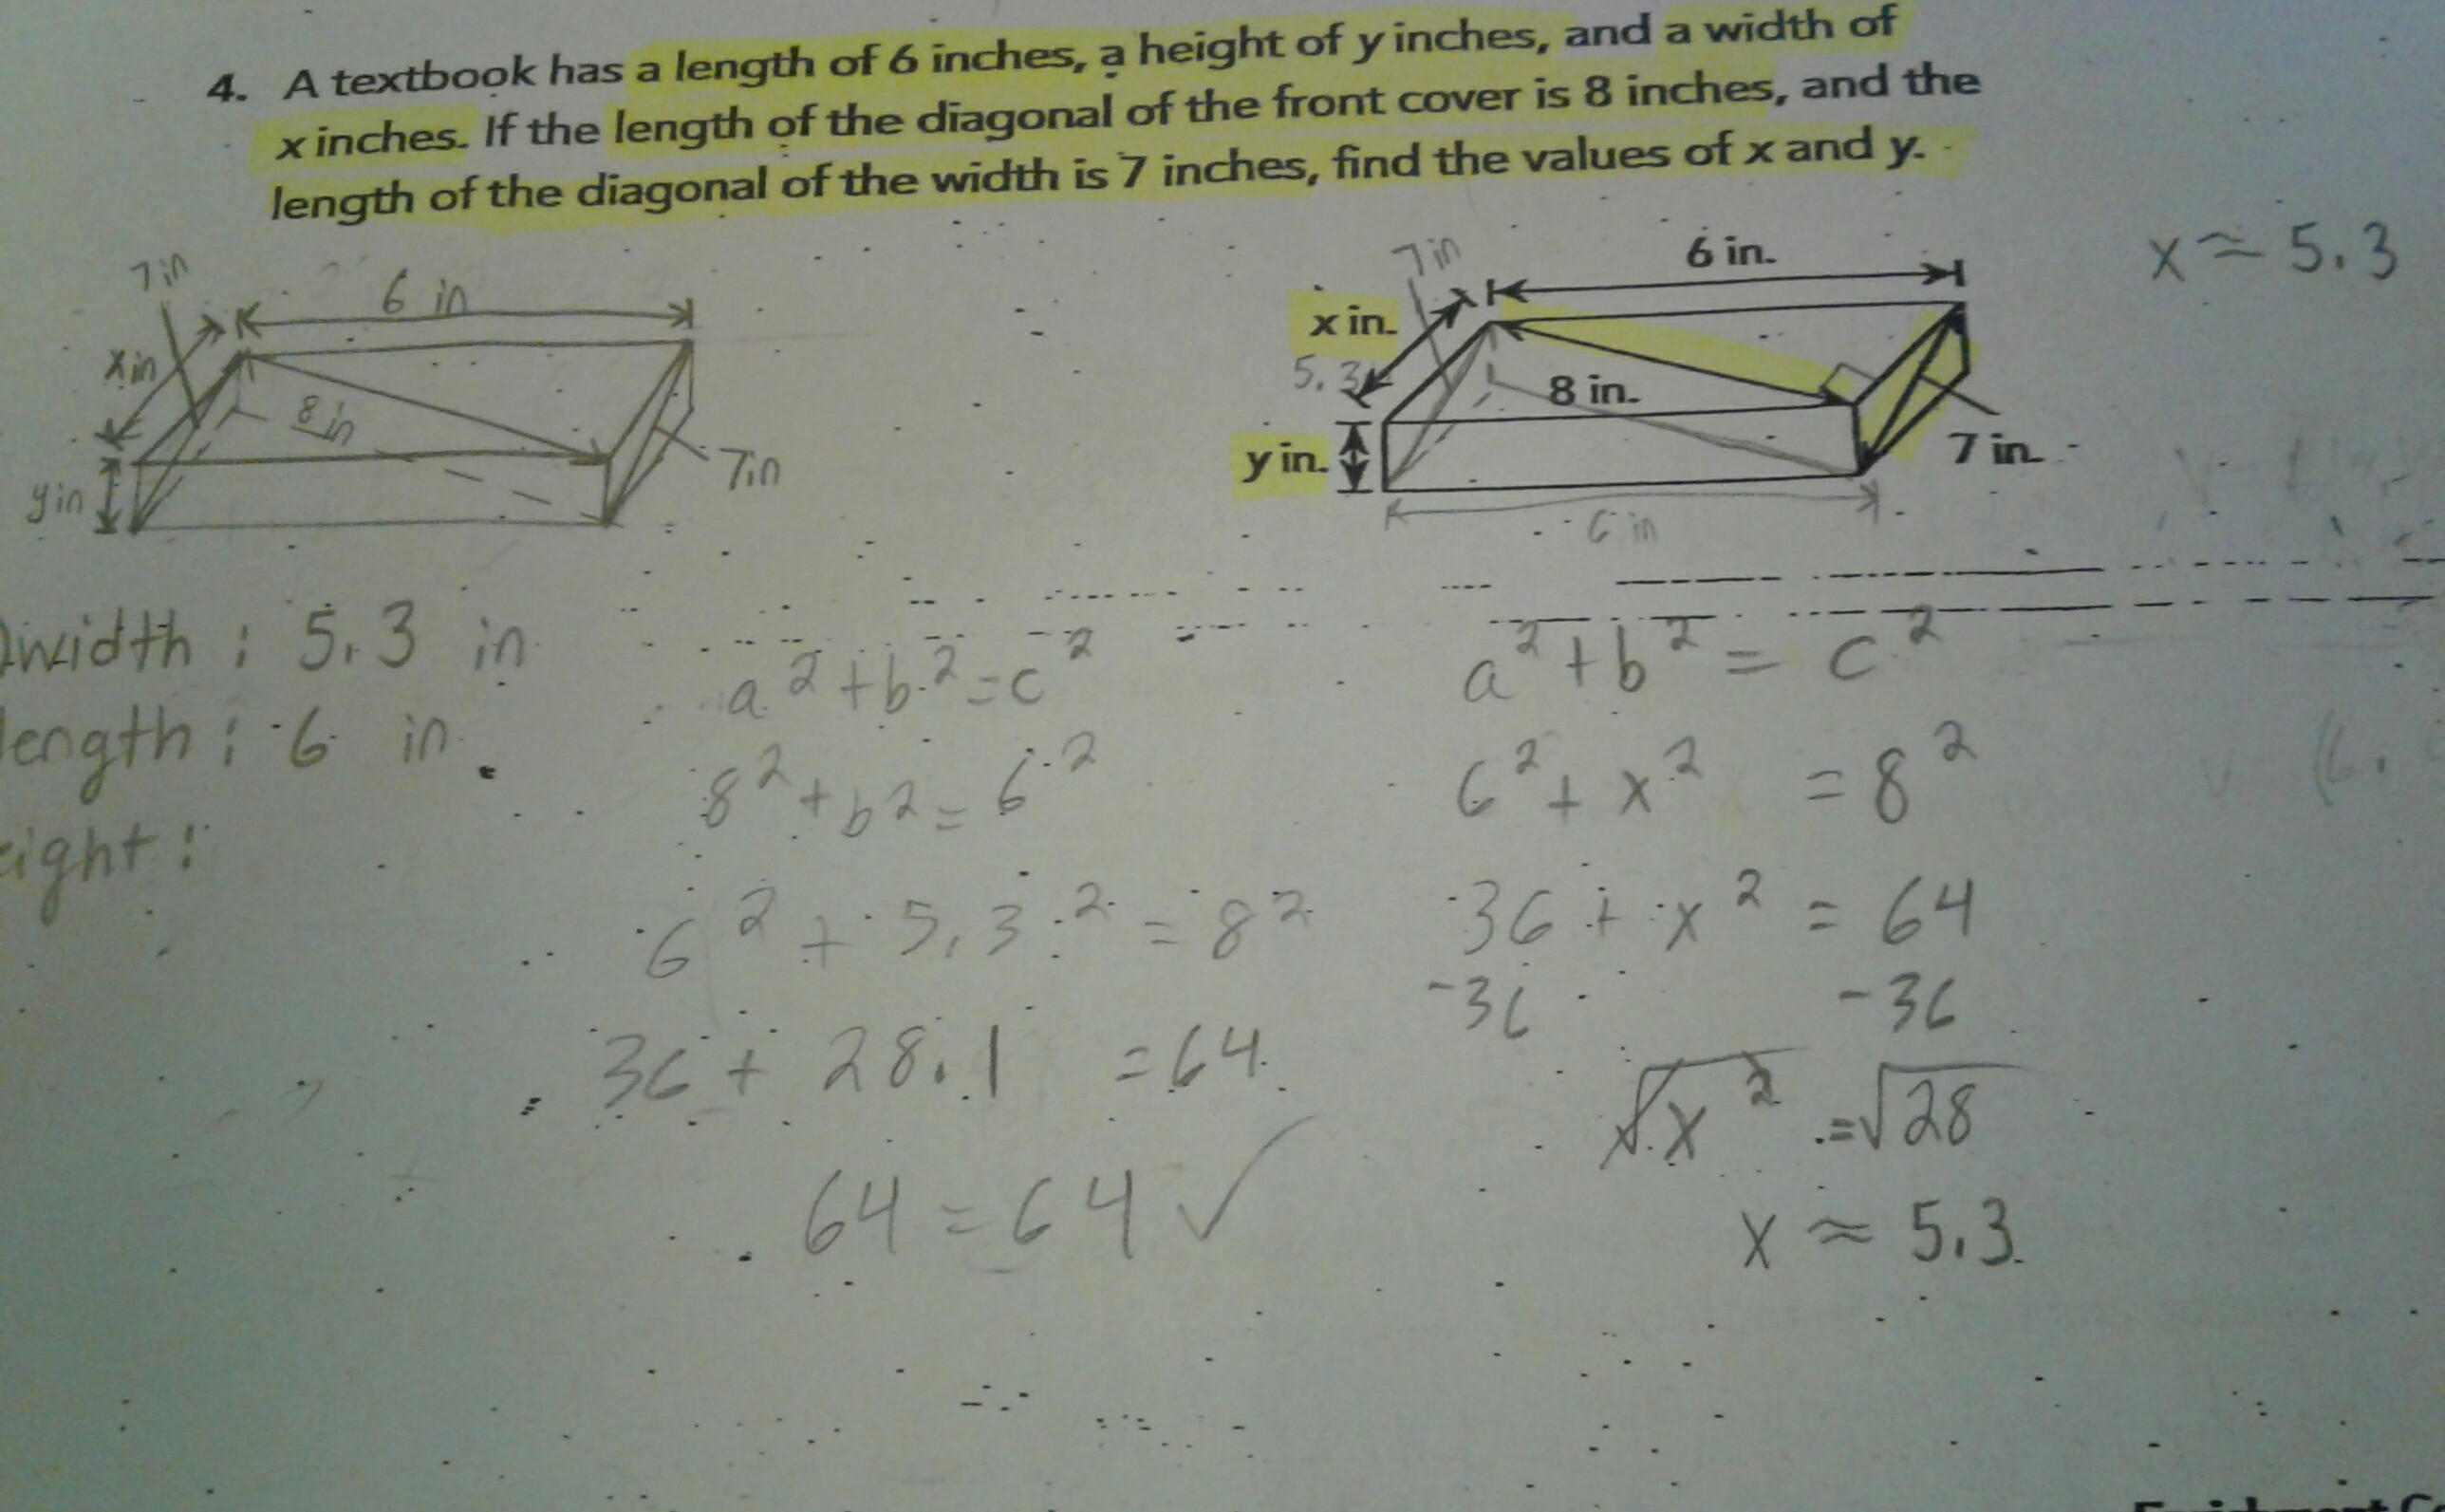 4. A textbook has a length of 6 inches, a height of y inches, and a width of
x inches. If the length of the diagonal of the front cover is 8 inches, and the
length of the diagonal of the width is 7 inches, find the values of x and y.
7in
6 in
xin
8 in
yin
7in
7in
6 in.
x in.
5.3
8 in.
y in.
7 in.
6 in
x ≈ 5.3
width : 5.3 in
length : 6 in
eight :
a² + b² = c²
8² + b2 = 6²
6² + 5.3² = 8²
36 + 28.1 = 64
64 = 64 ✓
a² + b² = c²
6² + x² = 8²
36 + x² = 64
-36 -36
√x² = √28
x ≈ 5.3